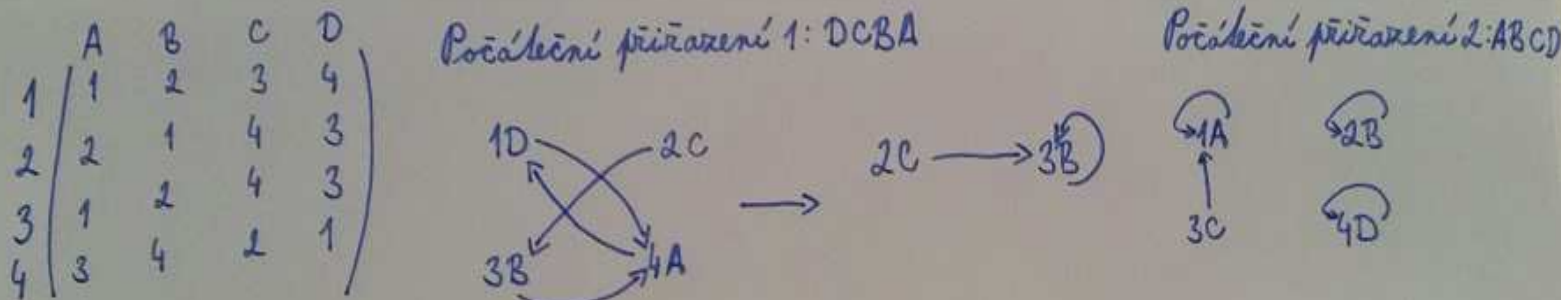 A B C D
1 1 2 3 4
2 2 1 4 3
3 1 2 4 3
4 3 4 2 1
Počáteční přiřazení 1: DCBA
1D 2C
3B 4A
2C 3B
Počáteční přiřazení 2: ABCD
1A 2B
3C 4D